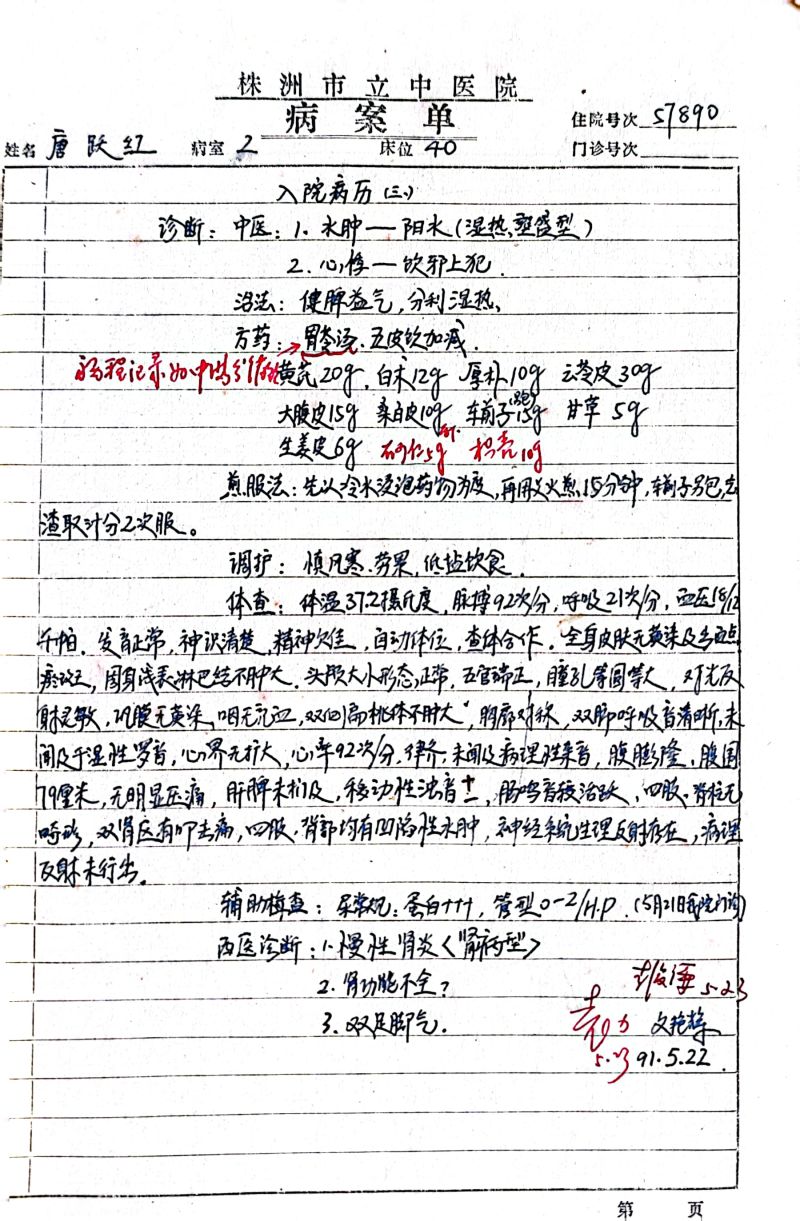 株洲市立中医院
病案单
住院号次 57890
姓名 唐跃红 病室 2 床位 40 门诊号次
入院病历(三)
诊断:中医:1. 水肿—阳水(湿热壅盛型)
2. 心悸—饮邪上犯.
治法:健脾益气,分利湿热、
方药:胃苓汤、五皮饮加减.
黄芪20g,白术12g 厚朴10g 云苓皮30g
大腹皮15g 桑白皮10g 车前子15g(包) 甘草5g
生姜皮6g 5g 枳壳10g
煎服法:先以冷水浸泡药物为度,再用文火煎15分钟,车前子另包,去
渣取汁分2次服。
调护:慎风寒、劳累,低盐饮食.
体查:体温37.2摄氏度,脉搏92次/分,呼吸21次/分,血压18/12
千帕.发育正常,神识清楚,精神欠佳,自动体位,查体合作.全身皮肤无黄染及出血点
瘀斑,周身浅表淋巴结不肿大.头颅大小形态正常,五官端正,瞳孔等圆等大,对光反
射灵敏,巩膜无黄染,咽无充血,双侧扁桃体不肿大,胸廓对称,双肺呼吸音清晰,未
闻及干湿性罗音,心界无扩大,心率92次/分,律齐,未闻及病理性杂音,腹膨隆,腹围
79厘米,无明显压痛,肝脾未扪及,移动性浊音+,肠鸣音较活跃,四肢、脊柱无
畸形,双肾区有叩击痛,四肢、背部均有凹陷性水肿,神经系统生理反射存在,病理
反射未引出.
辅助检查:尿常规:蛋白+++,管型0-2/H.P (5月21日我院门诊)
西医诊断:1.慢性肾炎<肾病型>
2.肾功能不全?
3.双足脚气.
5.23
5.23 91.5.22
第 页